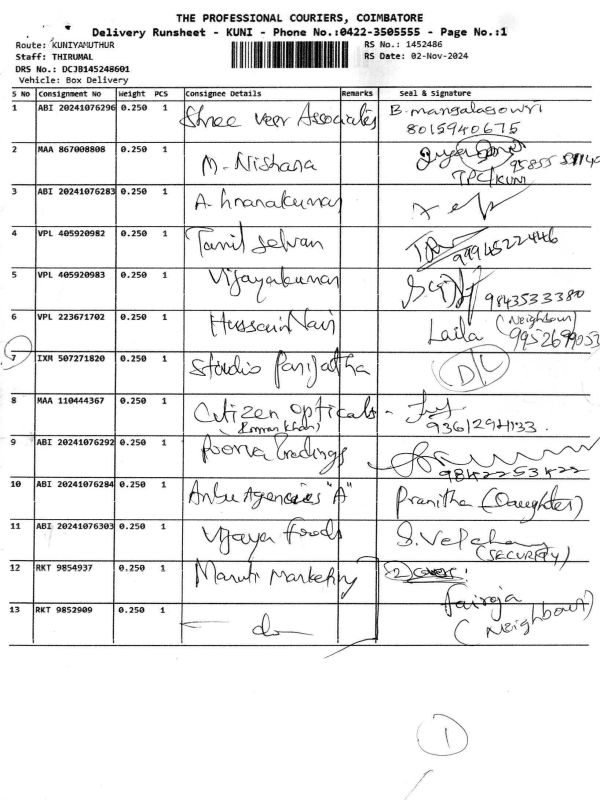 THE PROFESSIONAL COURIERS, COIMBATORE
Delivery Runsheet - KUNI - Phone No.:0422-3505555 - Page No.:1
Route: KUNIYAMUTHUR RS No.: 1452486
Staff: THIRUMAL RS Date: 02-Nov-2024
DRS No.: DCJB145248601
Vehicle: Box Delivery
S No Consignment No Weight PCS Consignee Details Remarks Seal & Signature
1 ABI 20241076296 0.250 1 Shree Veer Associates B. mangalagowri
8015940675
2 MAA 867008808 0.250 1 M. Nishana
TPC/KUNI
3 ABI 20241076283 0.250 1 A. Gnanakumar
4 VPL 405920982 0.250 1 Tamil Selvan
9994522446
5 VPL 405920983 0.250 1 Vijayakumar
9843533380
6 VPL 223671702 0.250 1 Hussain Nair Laila (Neighbour)
9952699053
7 IXM 507271820 0.250 1 Studio Parijatha D/L
8 MAA 110444367 0.250 1 Citizen opticals -
(Romman Khan) 9361294133.
9 ABI 20241076292 0.250 1 Poorva Tradings
9842253422
10 ABI 20241076284 0.250 1 Anbu Agencies "A" Pranitha (Daughter)
11 ABI 20241076303 0.250 1 Vijaya Foods S. Velchamy
(SECURITY)
12 RKT 9854937 0.250 1 Maruti Marketing 2 Covers.
13 RKT 9852909 0.250 1 do Fairoja
(Neighbour)
1